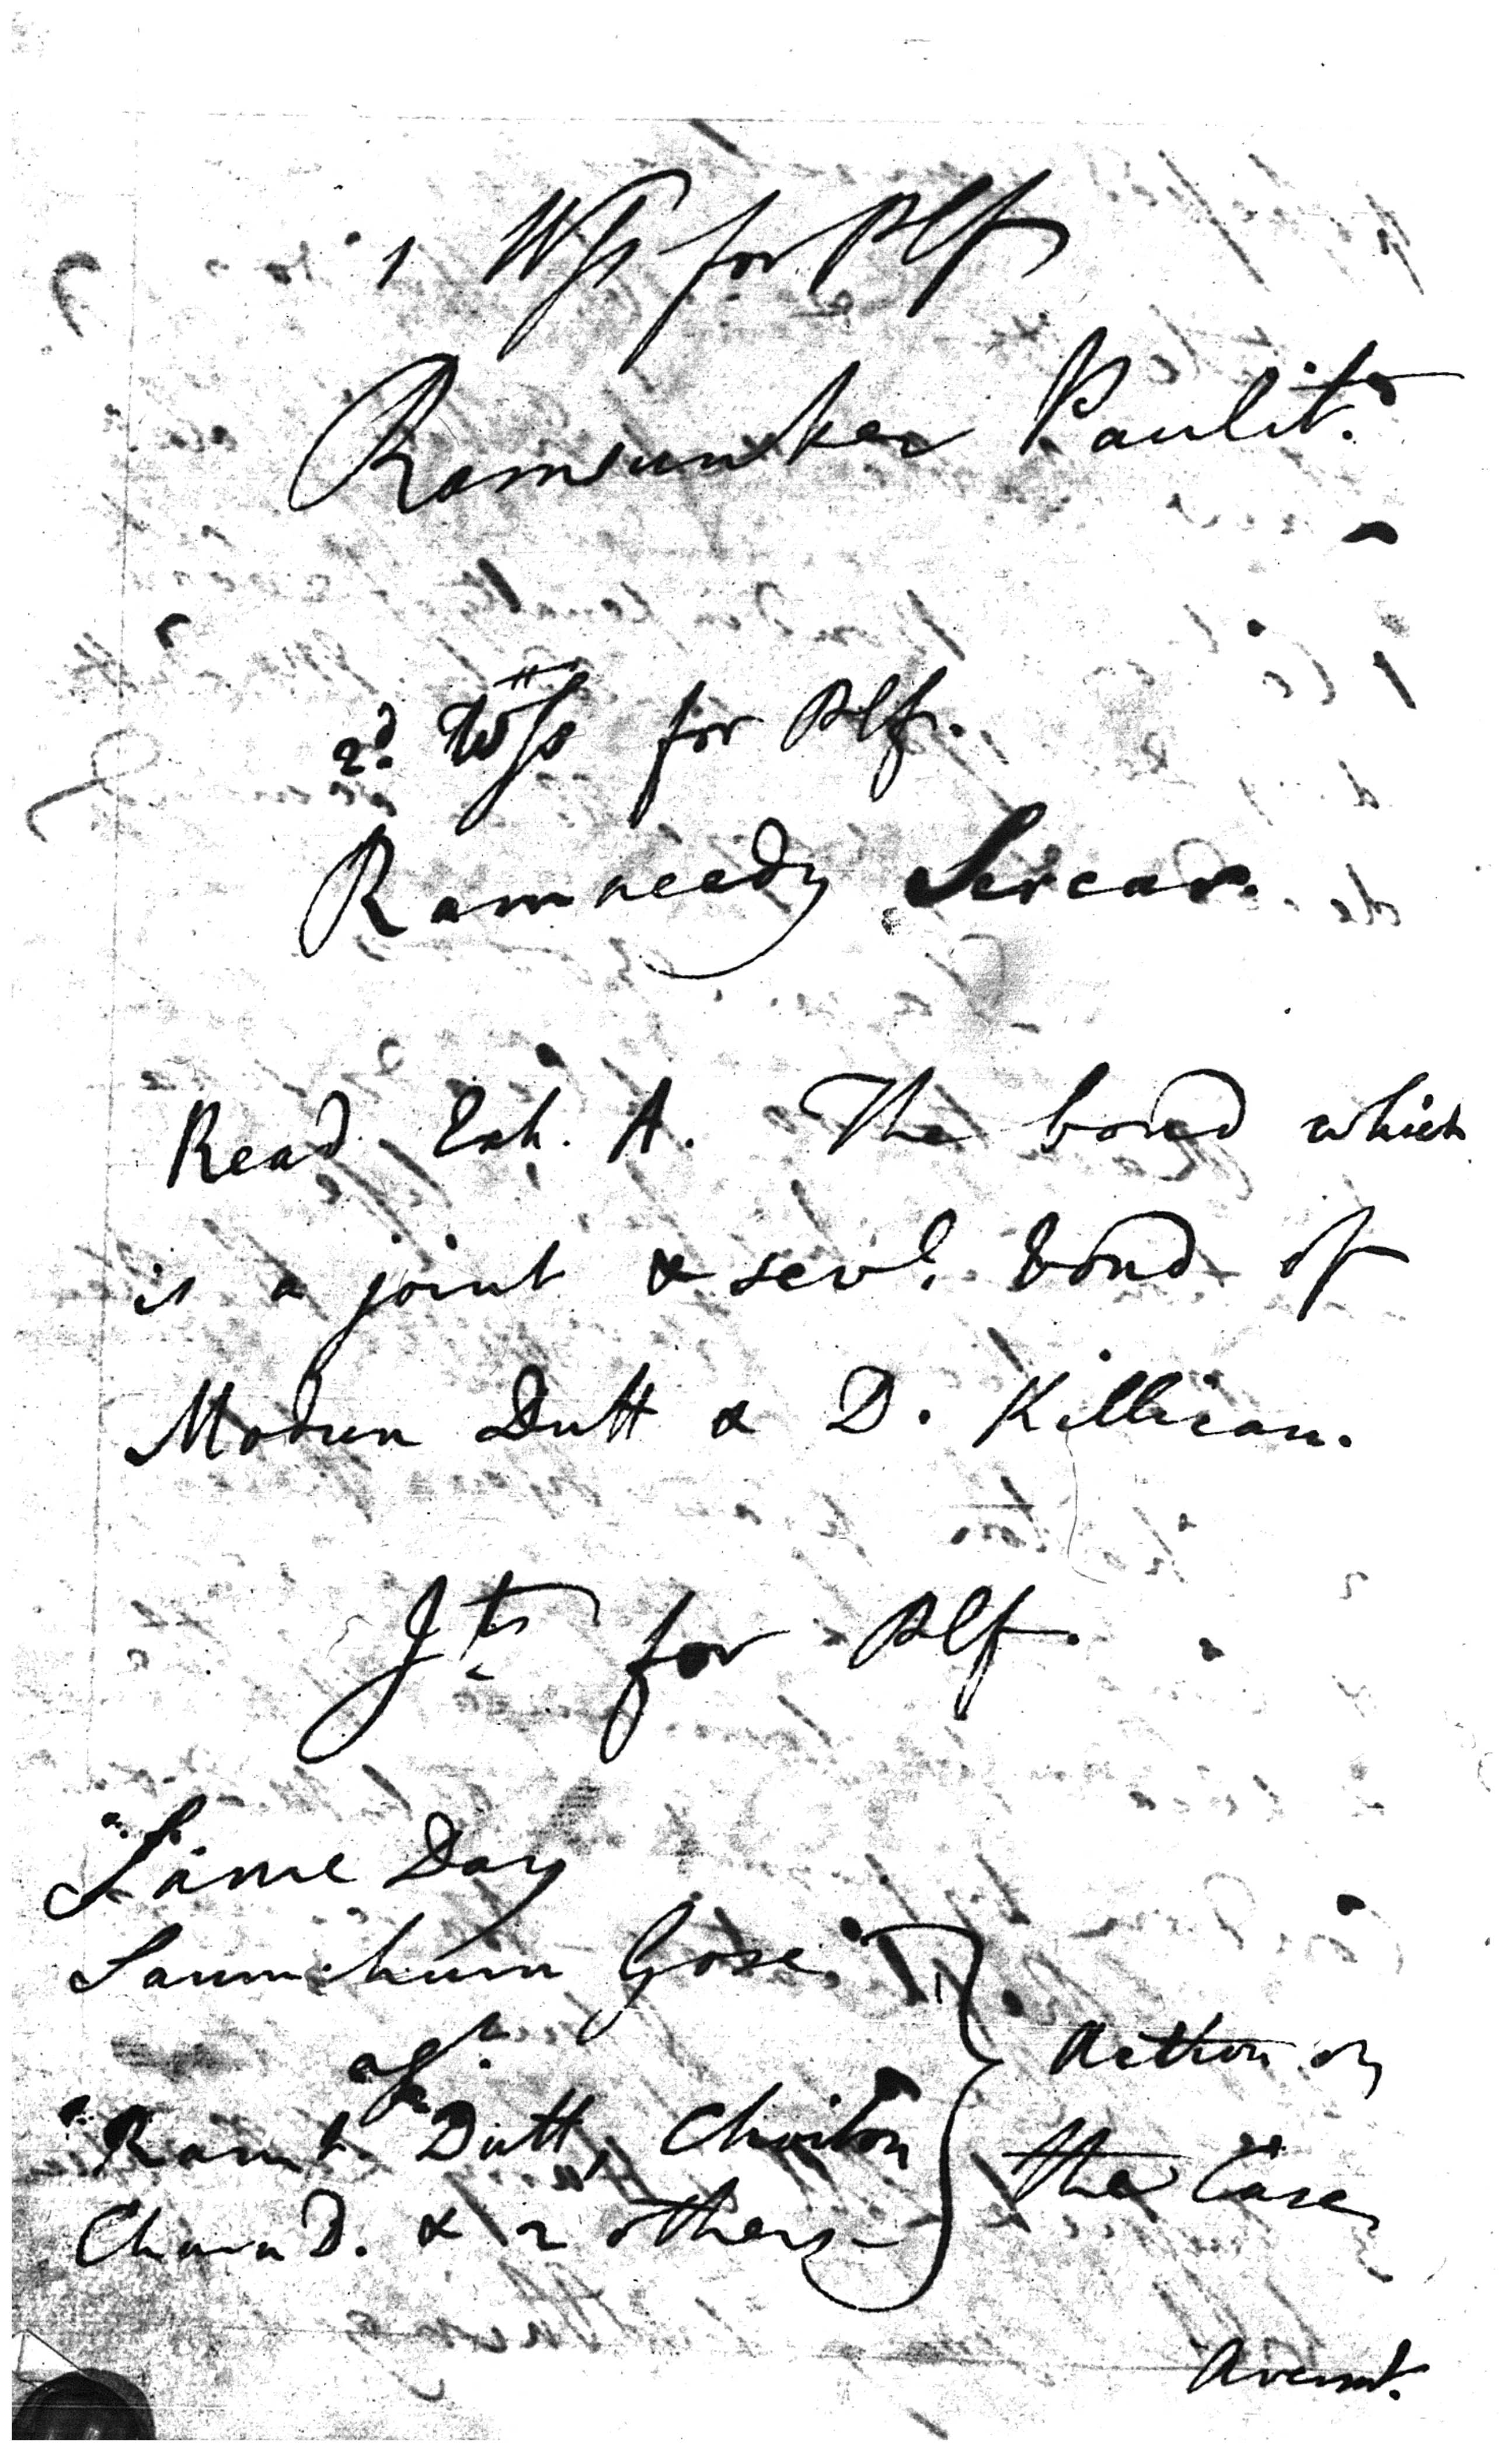 1 Wss for Plf
Ramsunker Paulit.
2d. Wss for Plf.
Ramneedy Sircar.
Read Exh. A. The bond which
is a joint & sevl. bond of
Modun Dutt & D. Killican.
Jt. for Plf.
Same Day
Gose
agt.
Ram Dutt, Choiton
Churn D. & 2 others
Action on
the Case
Avermt.